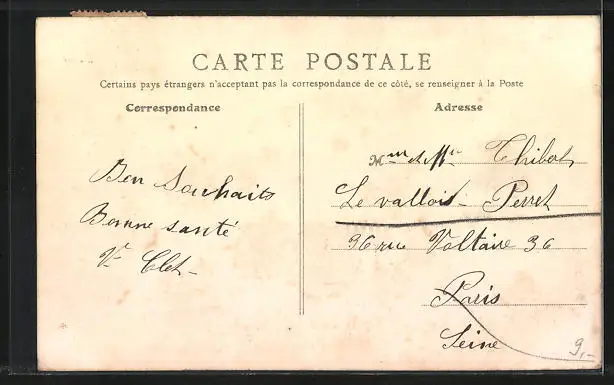 CARTE POSTALE
Certains pays étrangers n'acceptant pas la correspondance de ce côté, se renseigner à la Poste
Correspondance
Adresse
Bon Souhaits
Bonne santé
Vve Clet
Mme et Mr Thibot
Levallois-Perret
36 rue Voltaire 36
Paris
Seine
9,-